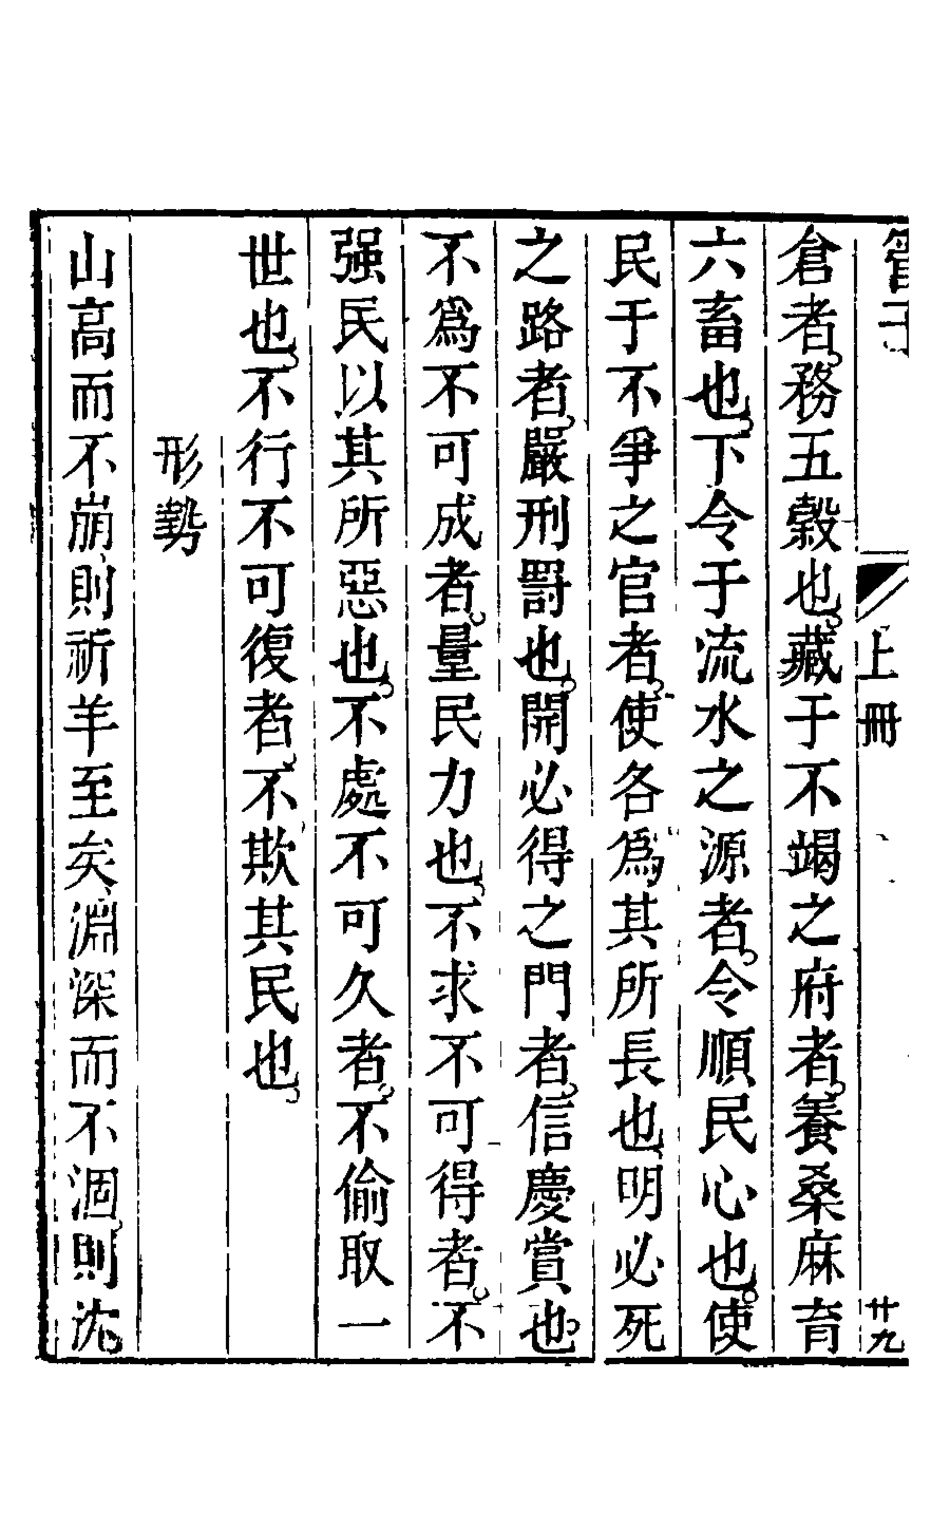 管子
上冊
廿九
倉者務五穀也藏于不竭之府者養桑麻育
六畜也下令于流水之源者令順民心也使
民于不爭之官者使各爲其所長也明必死
之路者嚴刑罰也開必得之門者信慶賞也
不爲不可成者量民力也不求不可得者不
强民以其所惡也不處不可久者不偷取一
世也不行不可復者不欺其民也
形勢
山高而不崩則祈羊至矣淵深而不涸則沈